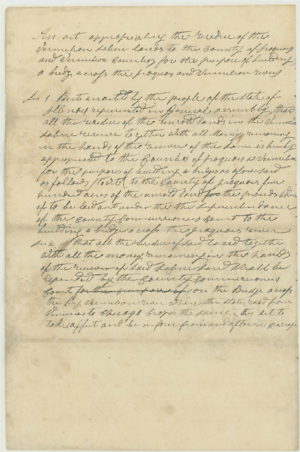 An act appropriating the residue of the
Vermilion Saline Lands to the County of Iroquois
and Vermilion Counties for the purpose of building
a bridge across the Iroquois and Vermilion rivers
Sec 1 Be it enacted by the people of the state of
Illinois represented in General assembly that
all the residue of the unsold lands in the Vermilion
saline reserve together with all money remaining
in the hands of the receiver of the same is hereby
appropriated to the Counties of Iroquois & Vermilion
for the purpose of building bridges as aforesaid
as follows (to wit) to the County of Iroquois five
hundred acres of the unsold land the proceeds
to be laid out under the superintendance
of the County Commissioners Court to the
building a bridge across the Iroquois river
Sec 2 that all the residue of said land together
with all the money remaining in the hands
of the receiver of said saline land shall be
expended by the County Commissioners
Court for the purpose of on the Bridge across
the Big Vermilion river where the state road from
Vincennes to Chicago crosses the same, this act to
take effect and be in force from and after its passage